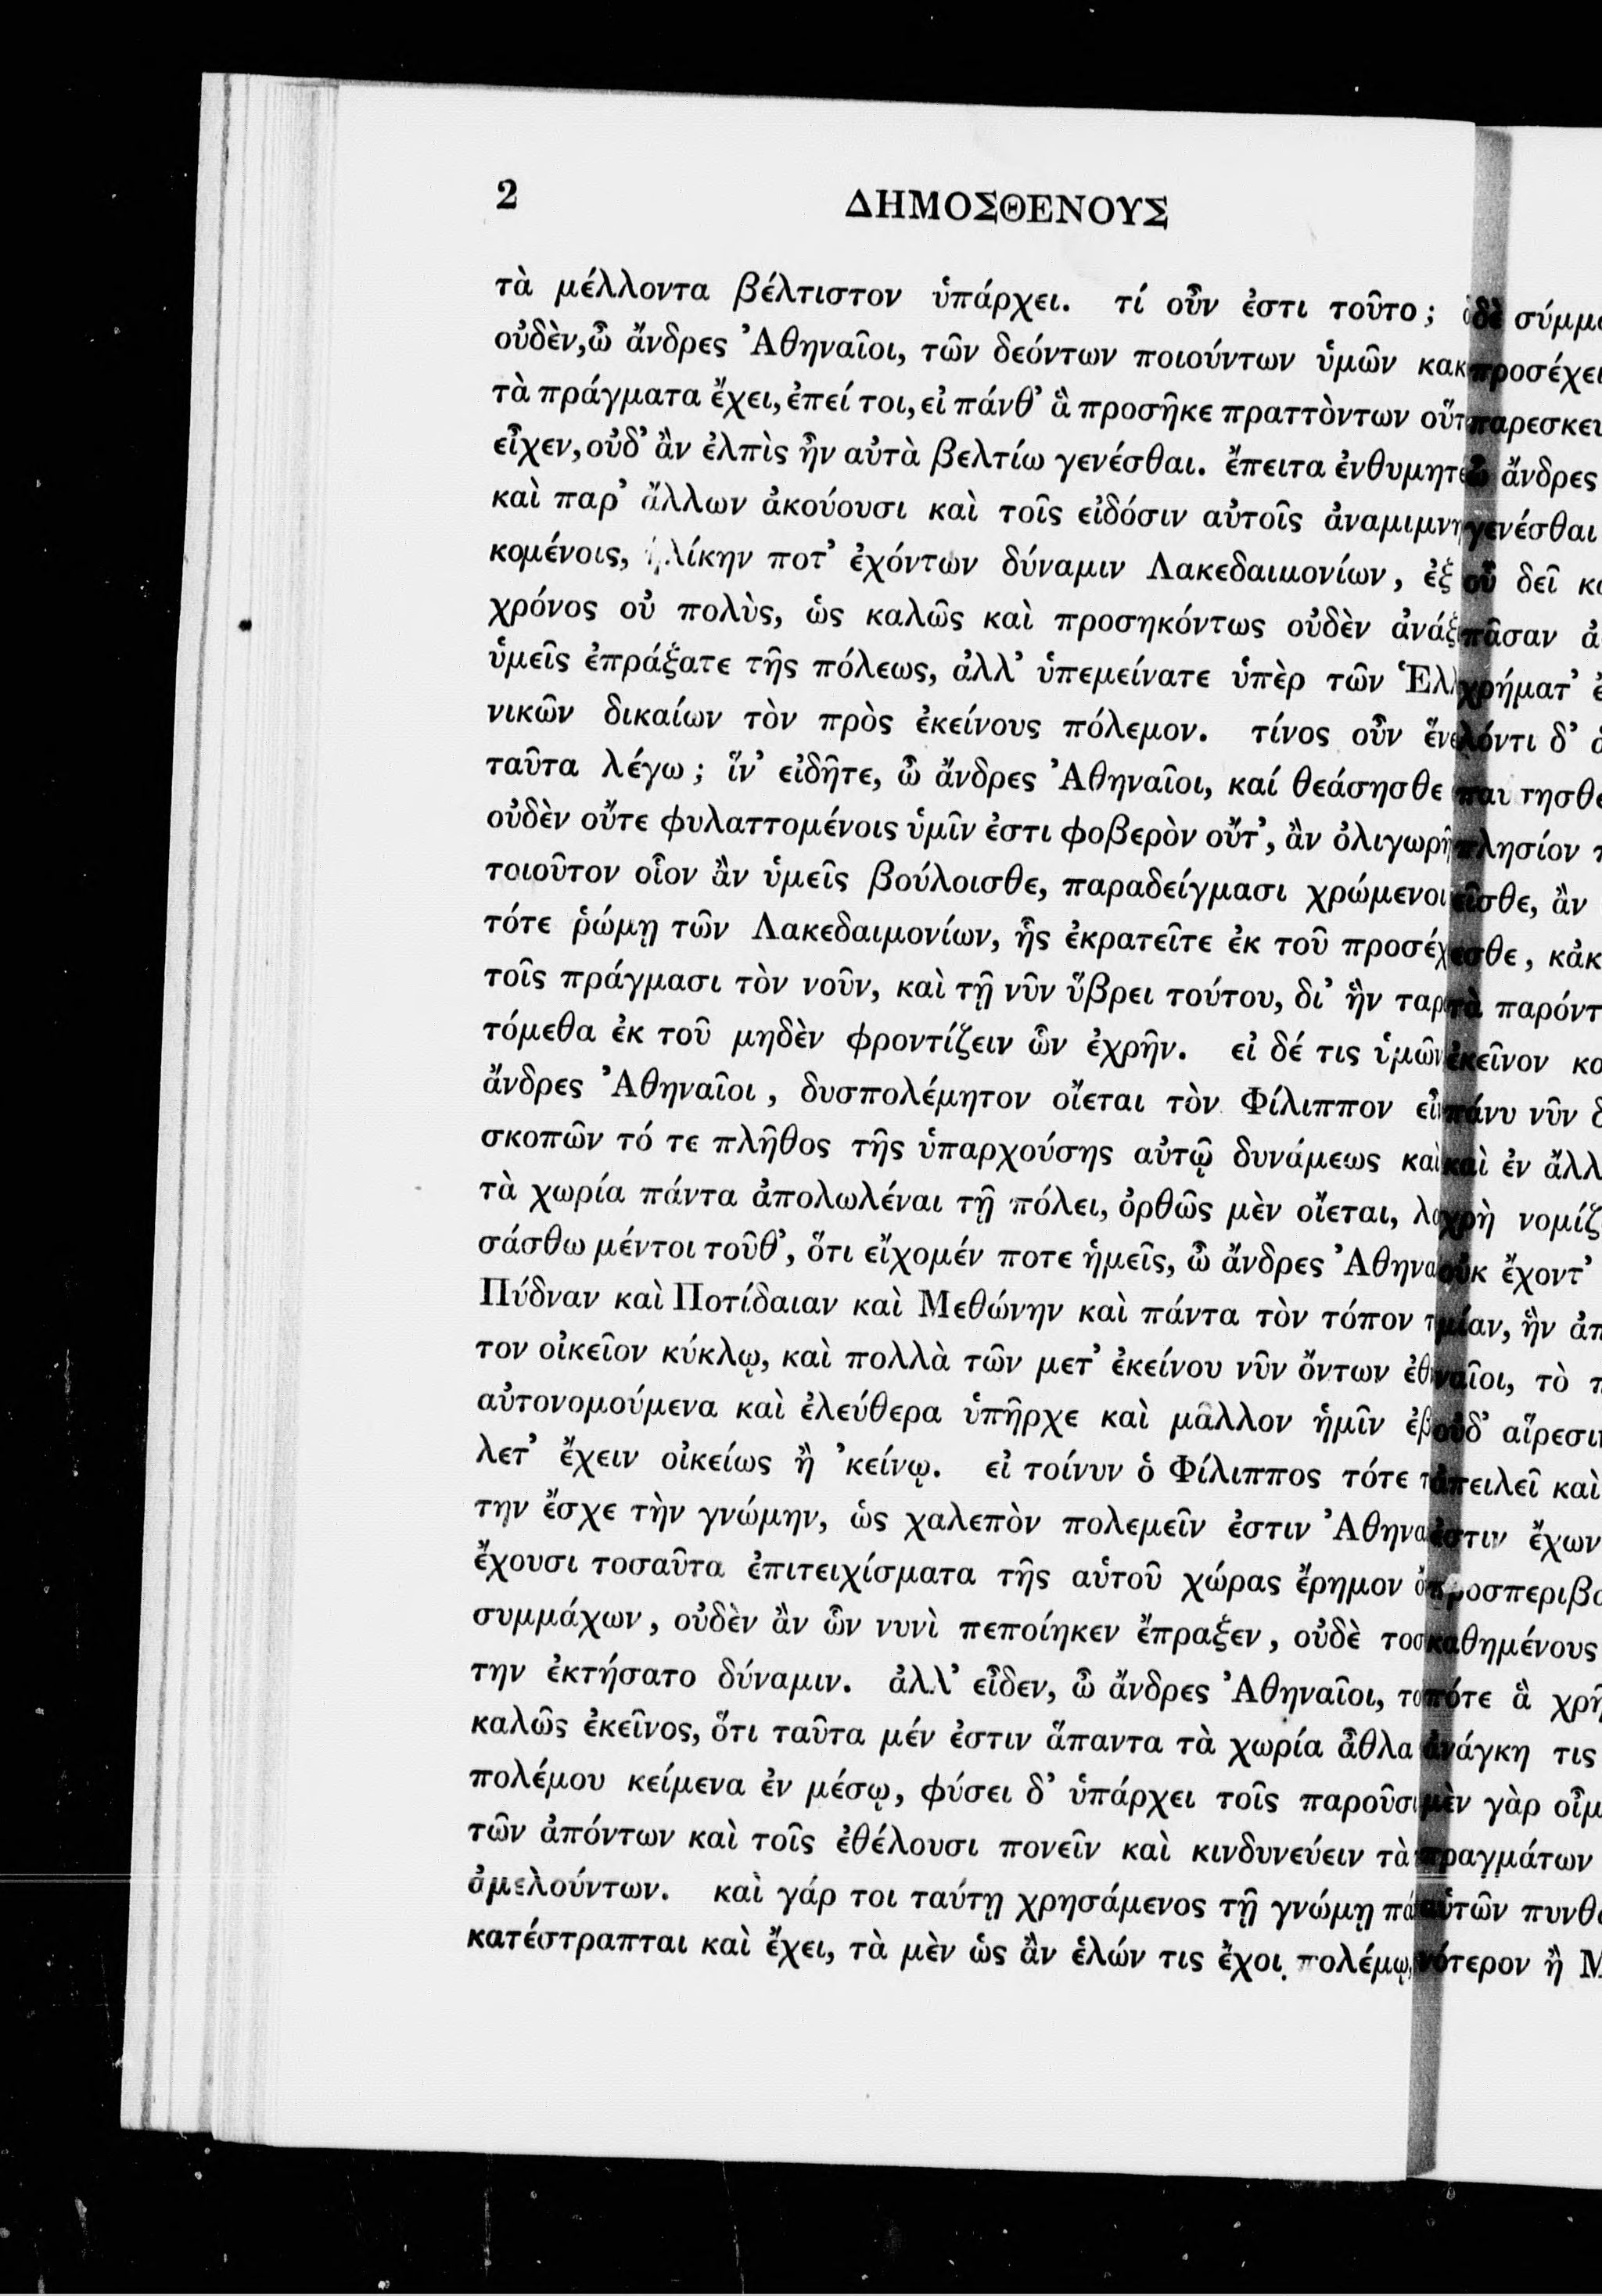 2
ΔΗΜΟΣΘΕΝΟΥΣ
τὰ μέλλοντα βέλτιστον ὑπάρχει. τί οὖν ἐστι τοῦτο;
οὐδὲν, ὦ ἄνδρες Ἀθηναῖοι, τῶν δεόντων ποιούντων ὑμῶν κακ
τὰ πράγματα ἔχει, ἐπεί τοι, εἰ πάνθ’ ἃ προσῆκε πραττὸντων οὕτ
εἶχεν, οὐδ’ ἂν ἐλπὶς ἦν αὐτὰ βελτίω γενέσθαι. ἔπειτα ἐνθυμητέ
καὶ παρ’ ἄλλων ἀκούουσι καὶ τοῖς εἰδόσιν αὐτοῖς ἀναμιμνη
κομένοις, ἡλίκην ποτ’ ἐχόντων δύναμιν Λακεδαιμονίων, ἐξ
χρόνος οὐ πολὺς, ὡς καλῶς καὶ προσηκόντως οὐδὲν ἀνάξ
ὑμεῖς ἐπράξατε τῆς πόλεως, ἀλλ’ ὑπεμείνατε ὑπὲρ τῶν Ἑλλ
νικῶν δικαίων τὸν πρὸς ἐκείνους πόλεμον. τίνος οὖν ἕνε
ταῦτα λέγω; ἵν’ εἰδῆτε, ὦ ἄνδρες Ἀθηναῖοι, καί θεάσησθε
οὐδὲν οὔτε φυλαττομένοις ὑμῖν ἐστι φοβερὸν οὔτ’, ἂν ὀλιγωρῆ
τοιοῦτον οἷον ἂν ὑμεῖς βούλοισθε, παραδείγμασι χρώμενοι
τότε ῥώμῃ τῶν Λακεδαιμονίων, ἧς ἐκρατεῖτε ἐκ τοῦ προσέχ
τοῖς πράγμασι τὸν νοῦν, καὶ τῇ νῦν ὕβρει τούτου, δι’ ἣν ταρ
τόμεθα ἐκ τοῦ μηδὲν φροντίζειν ὧν ἐχρῆν. εἰ δέ τις ὑμῶν
ἄνδρες Ἀθηναῖοι, δυσπολέμητον οἴεται τὸν Φίλιππον εἶ
σκοπῶν τό τε πλῆθος τῆς ὑπαρχούσης αὐτῷ δυνάμεως καὶ
τὰ χωρία πάντα ἀπολωλέναι τῇ πόλει, ὀρθῶς μὲν οἴεται, λο
σάσθω μέντοι τοῦθ’, ὅτι εἴχομέν ποτε ἡμεῖς, ὦ ἄνδρες Ἀθηνα
Πύδναν καὶ Ποτίδαιαν καὶ Μεθώνην καὶ πάντα τὸν τόπον τ
τον οἰκεῖον κύκλῳ, καὶ πολλὰ τῶν μετ’ ἐκείνου νῦν ὄντων ἐθ
αὐτονομούμενα καὶ ἐλεύθερα ὑπῆρχε καὶ μᾶλλον ἡμῖν ἐβ
λετ’ ἔχειν οἰκείως ἢ ’κείνῳ. εἰ τοίνυν ὁ Φίλιππος τότε τ
την ἔσχε τὴν γνώμην, ὡς χαλεπὸν πολεμεῖν ἐστιν Ἀθηνα
ἔχουσι τοσαῦτα ἐπιτειχίσματα τῆς αὑτοῦ χώρας ἔρημον ὄ
συμμάχων, οὐδὲν ἂν ὧν νυνὶ πεποίηκεν ἔπραξεν, οὐδὲ τοσ
την ἐκτήσατο δύναμιν. ἀλλ’ εἶδεν, ὦ ἄνδρες Ἀθηναῖοι, το
καλῶς ἐκεῖνος, ὅτι ταῦτα μέν ἐστιν ἅπαντα τὰ χωρία ἆθλα
πολέμου κείμενα ἐν μέσῳ, φύσει δ’ ὑπάρχει τοῖς παροῦσι
τῶν ἀπόντων καὶ τοῖς ἐθέλουσι πονεῖν καὶ κινδυνεύειν τὰ
ἀμελούντων. καὶ γάρ τοι ταύτῃ χρησάμενος τῇ γνώμῃ πά
κατέστραπται καὶ ἔχει, τὰ μὲν ὡς ἂν ἑλών τις ἔχοι πολέμῳ,
δὲ σύμμ
προσέχει
παρεσκευ
ὦ ἄνδρες
γενέσθαι
οὗ δεῖ
πᾶσαν ἀ
χρήματ’
λόντι δ’
τησθε
πλησίον
εῖσθε, ἂν
εσθε, κἀκ
τὰ παρόντ
ἐκεῖνον κα
πάνυ νῦν δ
καὶ ἐν ἄλλ
χρὴ νομίζ
οὐκ ἔχοντ’
μίαν, ἣν ἀπ
ναῖοι, τὸ π
οὐδ’ αἵρεσιν
ἀπειλεῖ καὶ
ἐστιν ἔχων
προσπεριβα
καθημένους
πότε ἃ χρῆ
ἀνάγκη τις
μὲν γὰρ οἶμ
πραγμάτων
αὑτῶν πυνθ
νότερον ἢ Μ